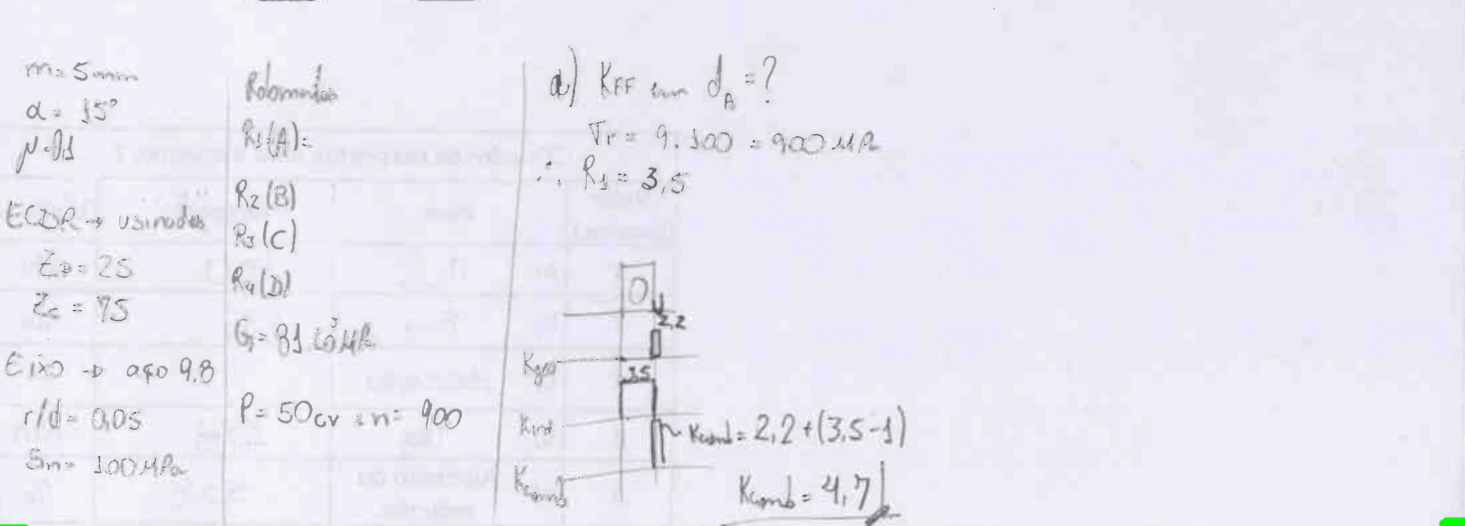 m= 5mm
α = 15°
μ=0,1
ECDR → usinados
Zp= 25
Zc = 75
Eixo → aço 9.8
r/d= 0,05
Sn= 100MPa
Rolamentos
R1(A)=
R2(B)
R3(C)
R4(D)
G= 81 10³ MPa
P= 50cv n= 900
a) KFF em dA=?
σr= 9.100 = 900 MPa
∴ R1= 3,5
2,2
Kgeo
3,5
Kint
Kcomb= 2,2+(3,5-1)
Kcomb
Kcomb= 4,7